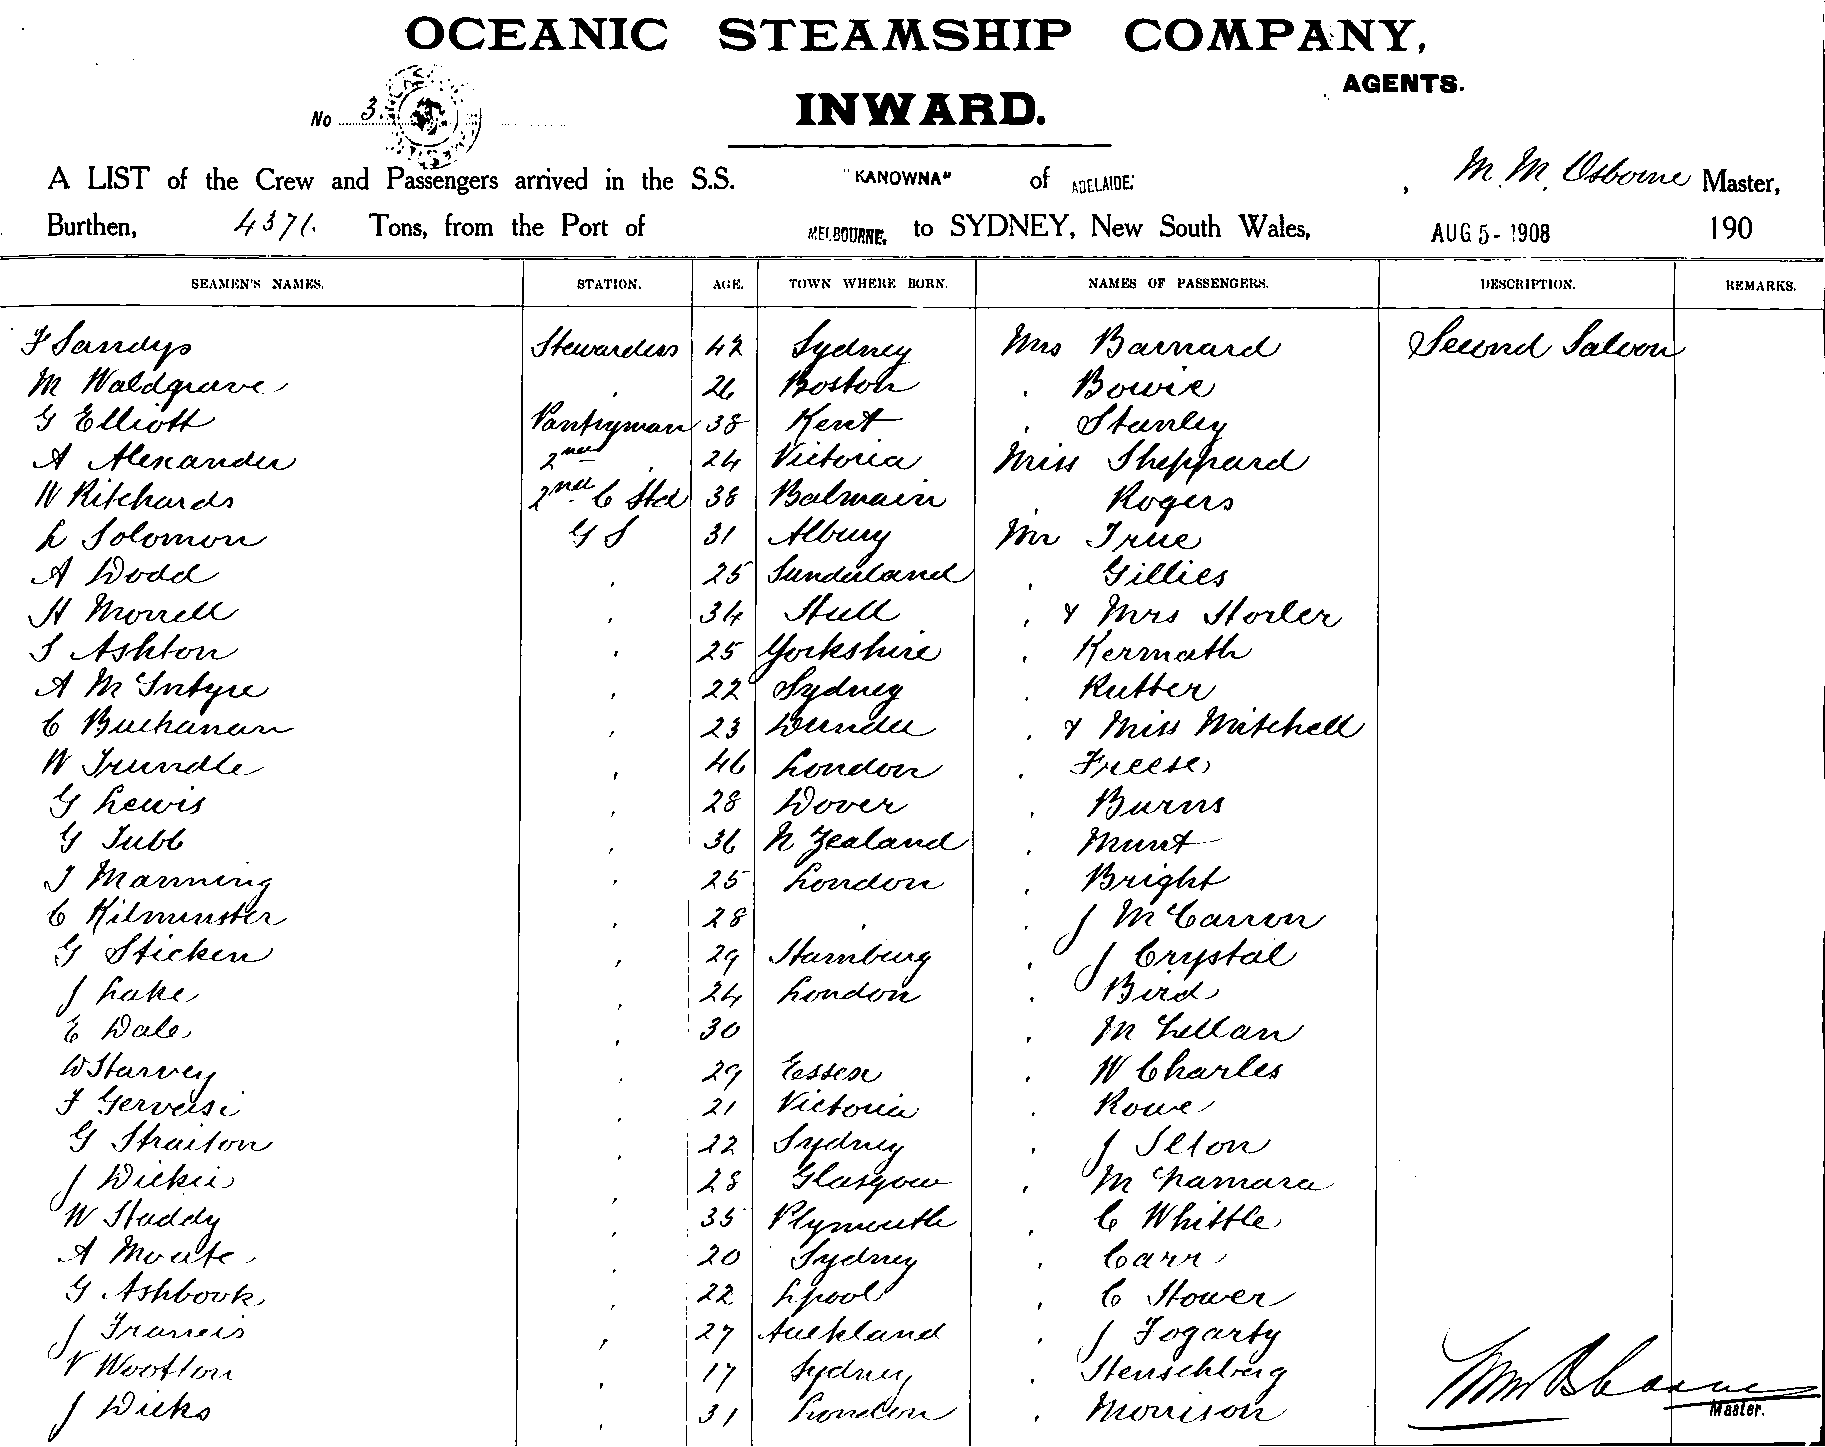 OCEANIC STEAMSHIP COMPANY,
AGENTS.
INWARD.
No 3.
A LIST of the Crew and Passengers arrived in the S.S. "KANOWNA" of ADELAIDE, M. M. Osborne Master,
Burthen, 4371. Tons, from the Port of MELBOURNE, to SYDNEY, New South Wales, AUG 5 - 1908 190
SEAMEN'S NAMES. STATION. AGE. TOWN WHERE BORN. NAMES OF PASSENGERS. DESCRIPTION. REMARKS.
F Sandys Stewardess 42 Sydney Mrs Barnard Second Saloon
M Waldgrave 26 Boston Bowie
G Elliott Pantryman 38 Kent Stanley
A Alexander 2nd 24 Victoria Miss Sheppard
W Ritchards 2nd C Std 38 Balmain Rogers
L Solomon G S 31 Albury Mr True
A Dodd 25 Sunderland Gillies
H Morrell 34 Hull & Mrs Horler
S Ashton 25 Yorkshire Kermath
A McIntyre 22 Sydney Rutter
C Buchanan 23 Dundee & Miss Mitchell
W Trundle 46 London Freese
G Lewis 28 Dover Burns
G Tubb 36 N Zealand Munt
T Manning 25 London Bright
C Kilminster 28 J McCarron
G Sticken 29 Hamburg J Crystal
J Lake 24 London Bird
E Dale 30 McLellan
W Harvey 29 Essex W Charles
F Gervasi 21 Victoria Rowe
G Straiton 22 Sydney J Selon
J Dickie 28 Glasgow McNamara
W Haddy 35 Plymouth C Whittle
A Moate 20 Sydney Carr
G Ashbook 22 Lpool C Hower
J Francis 27 Auckland J Fogarty
V Wootton 17 Sydney Henschberg
J Dicks 31 London Morrison
Master.